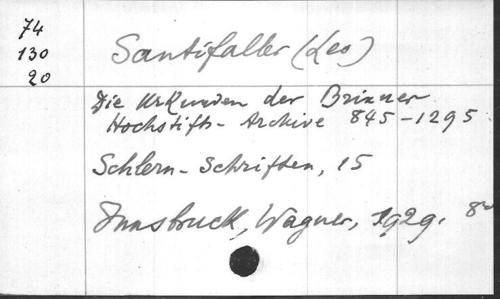 74
130
20
Santifaller (Leo)
Die Urkunden der Brixner
Hochstifts-Archive 845-1295
Schlern-Schriften, 15
Innsbruck, Wagner, 1929. 8°